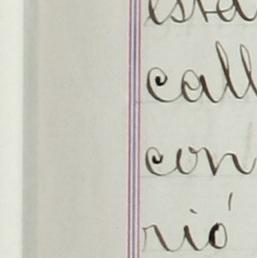 esta
call
con
rió